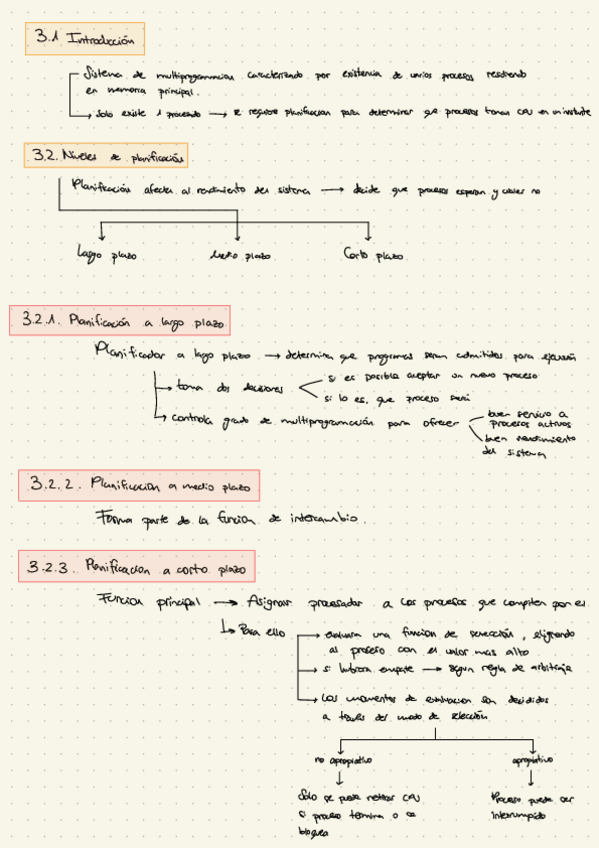 3.1 Introducción
Sistema de multiprogramación caracterizado por existencia de varios procesos residiendo
en memoria principal.
Solo existe 1 procesador → se requiere planificación para determinar que procesos toman CPU en un instante
3.2. Niveles de planificación
Planificación afecta al rendimiento del sistema → decide que procesos esperan y cuales no
Largo plazo Medio plazo Corto plazo
3.2.1. Planificación a largo plazo
Planificador a largo plazo → determina que programas seran admitidos para ejecución
toma dos decisiones
si es posible aceptar un nuevo proceso
si lo es, que proceso será
controla grado de multiprogramación para ofrecer
buen servicio a
procesos activos
buen rendimiento
del sistema
3.2.2. Planificacion a medio plazo
Forma parte de la funcion de intercambio.
3.2.3 Planificacion a corto plazo
Funcion principal → Asignar procesador a los procesos que compiten por el
Para ello
evaluara una funcion de selección, eligiendo
al proceso con el valor mas alto
si hubiera empate → segun regla de arbitraje
Los momentos de evaluacion son decididos
a traves del modo de selección
no apropiativo apropiativo
Solo se puede retirar CPU
si proceso termina o se
bloquea
Proceso puede ser
interrumpido